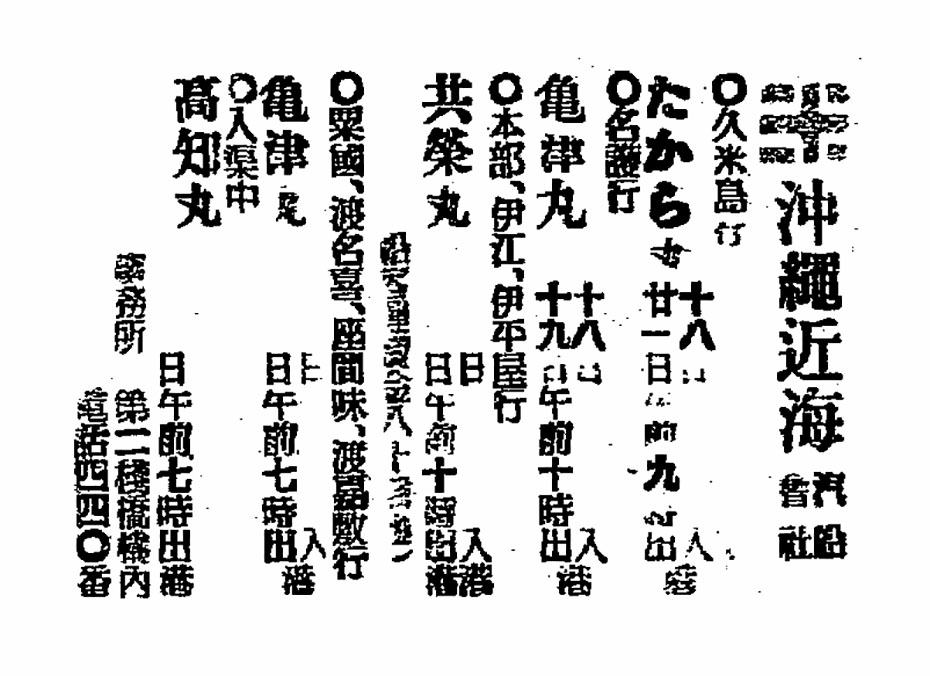 沖繩近海汽船會社
〇久米島行
たから
十八日
廿一日午前九
入
出
港
〇名護行
亀津丸
十八日
十九日午前十時
入
出
港
〇本部、伊江、伊平屋行
共榮丸
日
日午前十時
入港
出港
〇粟國、渡名喜、座間味、渡嘉敷行
亀津丸
日
日午前七時
入
出
港
〇入渠中
高知丸
日午前七時出港
事務所
第二棧橋構內
電話四四〇番